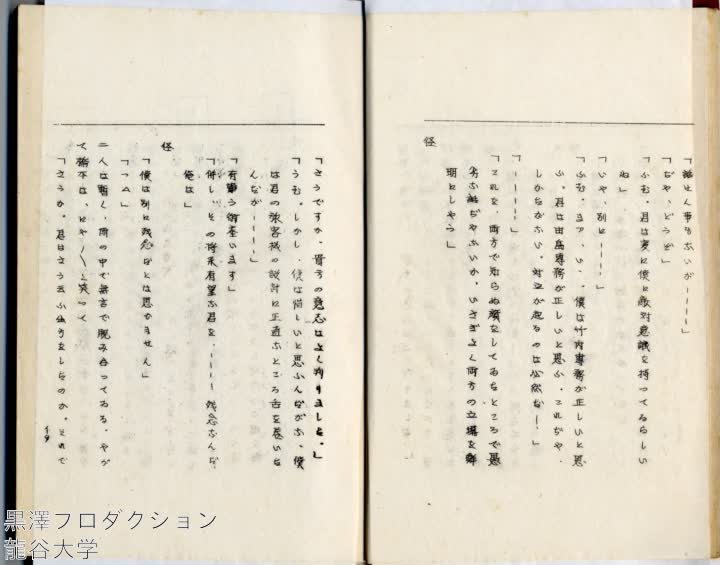 「話せん事もないが————」
「ぢや、どうぞ」
「ふむ、君は実に僕に敵対意識を持つてゐるらしいね」
「いや、別に————」
「ふむ、ま、いゝ、僕は竹内専務が正しいと思ふ、君は由島専務が正しいと思ふ、これぢや、しかたがない、対立が起るのは必然だ——」
「————」
「これを、両方で知らぬ顔をしてゐたところで思ふ話ぢやないか、いさぎよく両方の立場を鮮明にしやう」
怪
「さうですか、貴方の意志はよく判りました。」
「うむ。しかし、僕は惜しいと思ふんだがな、僕は君の旅客機の設計に正直なところ舌を巻いたんだが————」
「有難う御座います」
「併し、その将来有望な君を、————残念だんだ、俺は」
怪
「僕は別に残念だとは思ひません」
「つむ」
二人は暫く、雨の中で無言で睨み合つてゐる、やがて橋本は、にや／＼と笑つて
「さうか。君はさう云ふ独方をしたのか。それで
黒澤フロダクション
龍谷大学